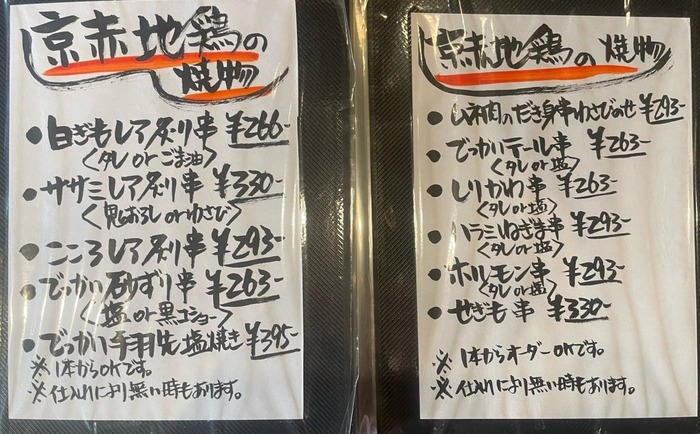 京赤地鶏の
焼物
●白ぎもレア炙り串 ¥266-
<タレorごま油>
●ササミレア炙り串 ¥330-
<鬼おろしorわさび>
●こころレア炙り串 ¥293-
●でっかい砂ずり串 ¥263-
<塩or黒コショー>
●でっかい手羽先塩焼き ¥395-
※1本からOKです。
※仕入れにより無い時もあります。
京赤地鶏の焼物
●ムネ肉のだき身串わさびのせ ¥293-
●でっかいテール串 ¥263-
<タレor塩>
●しりかわ串 ¥263-
<タレor塩>
●ハラミねぎま串 ¥293-
<タレor塩>
●ホルモン串 ¥293-
<タレor塩>
●せぎも串 ¥330-
※1本からオーダーOKです。
※仕入れにより無い時もあります。